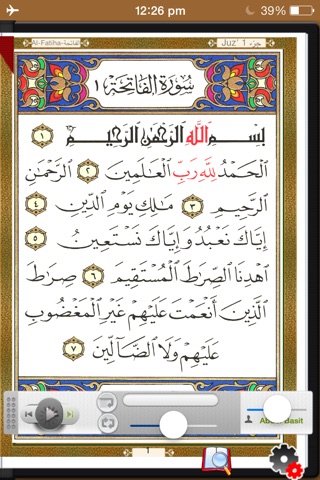 12:26 pm 39%
Al-Fatiha-الفاتحة Juz' 1 جزء
سُورَةُ الفَاتِحَةِ ١
بِسْمِ اللَّهِ الرَّحْمَٰنِ الرَّحِيمِ ١
الْحَمْدُ لِلَّهِ رَبِّ الْعَالَمِينَ ٢ الرَّحْمَٰنِ
الرَّحِيمِ ٣ مَالِكِ يَوْمِ الدِّينِ ٤
إِيَّاكَ نَعْبُدُ وَإِيَّاكَ نَسْتَعِينُ ٥
اهْدِنَا الصِّرَاطَ الْمُسْتَقِيمَ ٦ صِرَاطَ
الَّذِينَ أَنْعَمْتَ عَلَيْهِمْ غَيْرِ الْمَغْضُوبِ
عَلَيْهِمْ وَلَا الضَّالِّينَ ٧
Abdul Basit
1